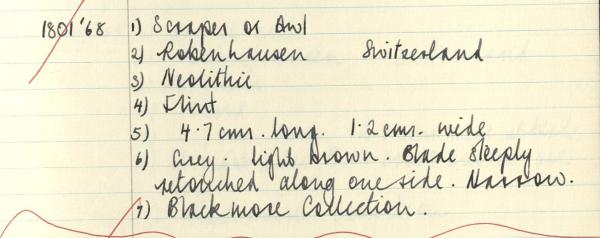 1801'68 1) Scraper or Awl
2) Robenhausen Switzerland
3) Neolithic
4) Flint
5) 4.7 cms. long. 1.2 cms. wide
6) Grey. light brown. Blade steeply
retouched along one side. Narrow.
7) Blackmore Collection.